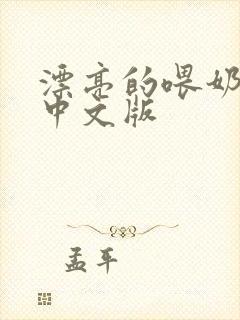 漂亮的喂奶
中文版
孟平